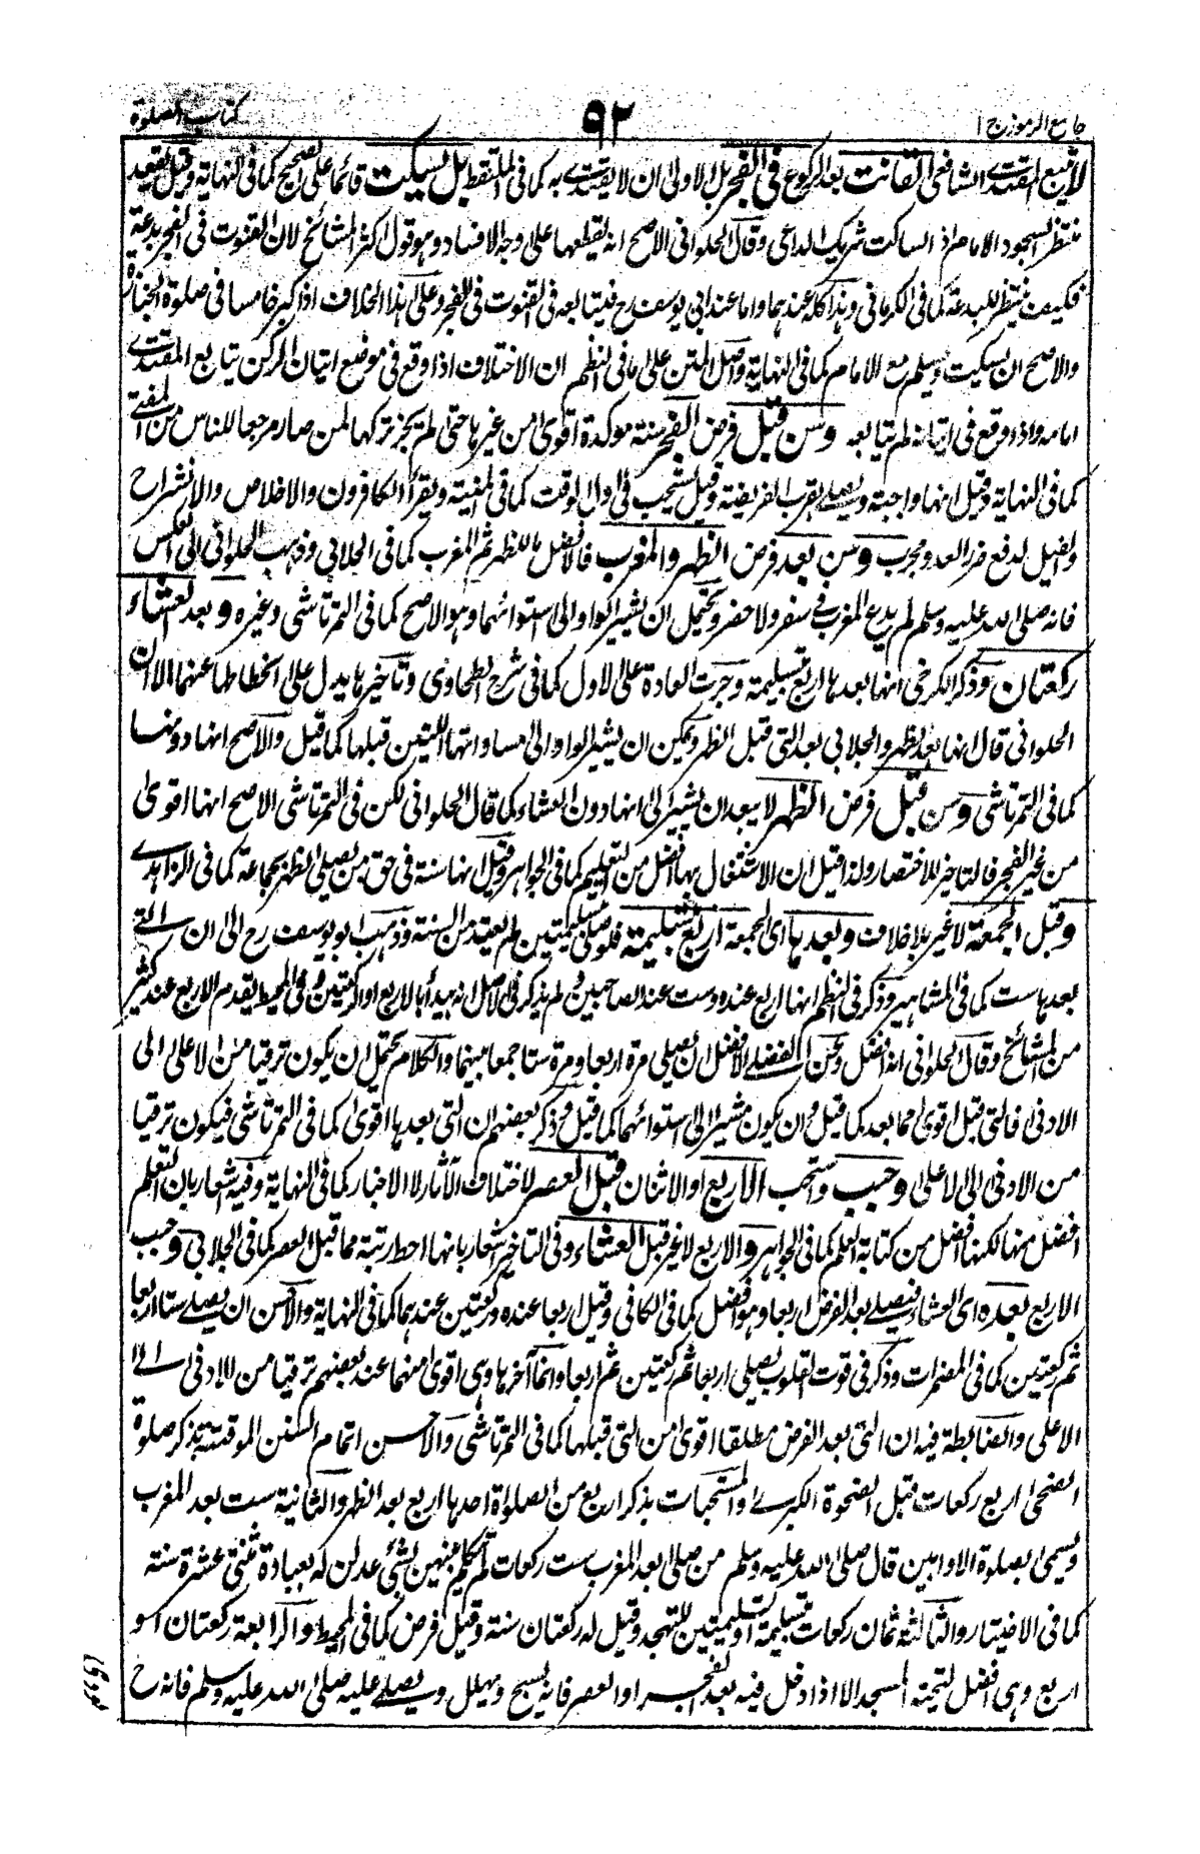 جامع الرموز ج ا
٩٢
كتاب الصلوة
لا يتبع المقتدي الشافعي القانت بعد الركوع في الفجر بل الاولى ان لا يقتدي به كما في الملتقط بل يسكت قائما على الصحيح كما في النهاية وقيل يقعد
منتظر السجود الامام اذ الساكت شريك الداعي وقال الحلواني الاصح انه يقطعها على وجه الافساد وهو قول اكثر المشائخ لان القنوت في الفجر بدعة
فكيف ينتظر للبدعة كما في الكرماني وهذا كله عندهما واما عند ابي يوسف رح فيتابعه في القنوت في الفجر وعلى هذا الخلاف اذا كبر خامسا في صلوة الجنازة
والاصح ان يسكت ويسلم مع الامام كما في النهاية واصل المتن على ما في النظم ان الاختلاف اذا وقع في موضع اتيان الركن يتابع المقتدي
امامه واذا وقع في اتيانه لم يتابعه وسن قبل فرض الفجر سنة موكدة اقوى من غيرها حتى لم يجز تركها لمن صار مرجعا للناس من المفتي
كما في النهاية وقيل انها واجبة ويصلي بقرب الفريضة وقيل يستحب في اول الوقت كما في المنية ويقرأ الكافرون والاخلاص والانشراح
والفيل لدفع ضرر العدو مجرب وسن بعد فرض الظهر والمغرب فالافضل ما للظهر ثم المغرب كما في الجلابي وذهب الحلواني الى العكس
فانه صلى الله عليه وسلم لم يدع المغرب في سفر ولا حضر ويحتمل ان يشير الواو الى استوائهما وهو الاصح كما في التمرتاشي وغيره وبعد العشاء
ركعتان وذكر الكرخي انها بعدها اربع بتسليمة وجرت العادة على الاول كما في شرح الطحاوي وتاخيرها يدل على انحطاطها عنهما الا ان
الحلواني قال انها بعد الظهر والجلابي بعد التي قبل الظهر ويمكن ان يشير الواو الى مساواتها اللتين قبلها كما قيل والاصح انها دونهما
كما في التمرتاشي وسن قبل فرض الظهر لا يبعد ان يشير الى انها دون العشاء كما قال الحلواني لكن في التمرتاشي الاصح انها اقوى
من غير الفجر فالتاخير للاختصار ولذا قيل ان الاشتغال بها افضل من التعليم كما في الجواهر وقيل انها سنة في حق من يصلي الظهر بجماعة كما في الزاهدي
وقبل الجمعة لا غير بلا خلاف وبعدها اى الجمعة اربع بتسليمة فلو صلى بتسليمتين لم يعتد من السنة وذهب ابو يوسف رح الى ان التي
بعدها ست كما في المشاهير وذكر في النظم انها اربع عنده وست عند الصاحبين ولم يذكر في الاصل انه يبدأ بالاربع او الركعتين وفي المحيط يقدم الاربع عند كثير
من المشائخ وقال الحلواني انه افضل وعن الفضلي الافضل ان يصلي مرة اربعا ومرة ستا جمعا بينهما والكلام يحتمل ان يكون ترقيا من الاعلى الى
الادنى فالتي قبل اقوى مما بعد كما قيل وان يكون مشيرا الى استوائهما كما قيل وذكر بعضهم ان التي بعدها اقوى كما في التمرتاشي فيكون ترقيا
من الادنى الى الاعلى وحبب واستحب الاربع او الاثنان قبل العصر لاختلاف الآثار لا الاخبار كما في النهاية وفيه اشعار بان التعلم
افضل منها لكنها افضل من كتابة العلم كما في الجواهر والاربع لا غير قبل العشاء وفي التاخير اشعار بانها احط رتبة مما قبل العصر كما في الجلابي وحبب
الاربع بعده اى العشاء فيصلي بعد الفرض اربعا وهو افضل كما في الكافي وقيل اربعا عنده وركعتين عندهما كما في النهاية والاحسن ان يصلي ستا اربعا
ثم ركعتين كما في المضمرات وذكر في قوت القلوب يصلي اربعا ثم ركعتين ثم اربعا وانما آخرها وهي اقوى منهما عند بعضهم ترقيا من الادنى الى
الاعلى والضابطة فيه ان التي بعد الفرض مطلقا اقوى من التي قبلها كما في التمرتاشي والاحسن اتمام السنن الموقتة بذكر صلوة
الضحى اربع ركعات قبل الضحوة الكبرى والمستحبات بذكر اربع من الصلوة احدها اربع بعد الظهر والثانية ست بعد المغرب
ويسمى بصلوة الاوابين قال صلى الله عليه وسلم من صلى بعد المغرب ست ركعات لم يتكلم بينهن بشئ عدلن له بعبادة ثنتي عشرة سنة
كما في الاختيار والثالثة ثمان ركعات بتسليمة او تسليمتين للتهجد وقيل له ركعتان سنة وقيل فرض كما في المحيط والرابعة ركعتان او
اربع وهي افضل لتحية المسجد الا اذا دخل فيه بعد الفجر او العصر فانه يسبح ويهلل ويصلي عليه صلى الله عليه وسلم فانه ح